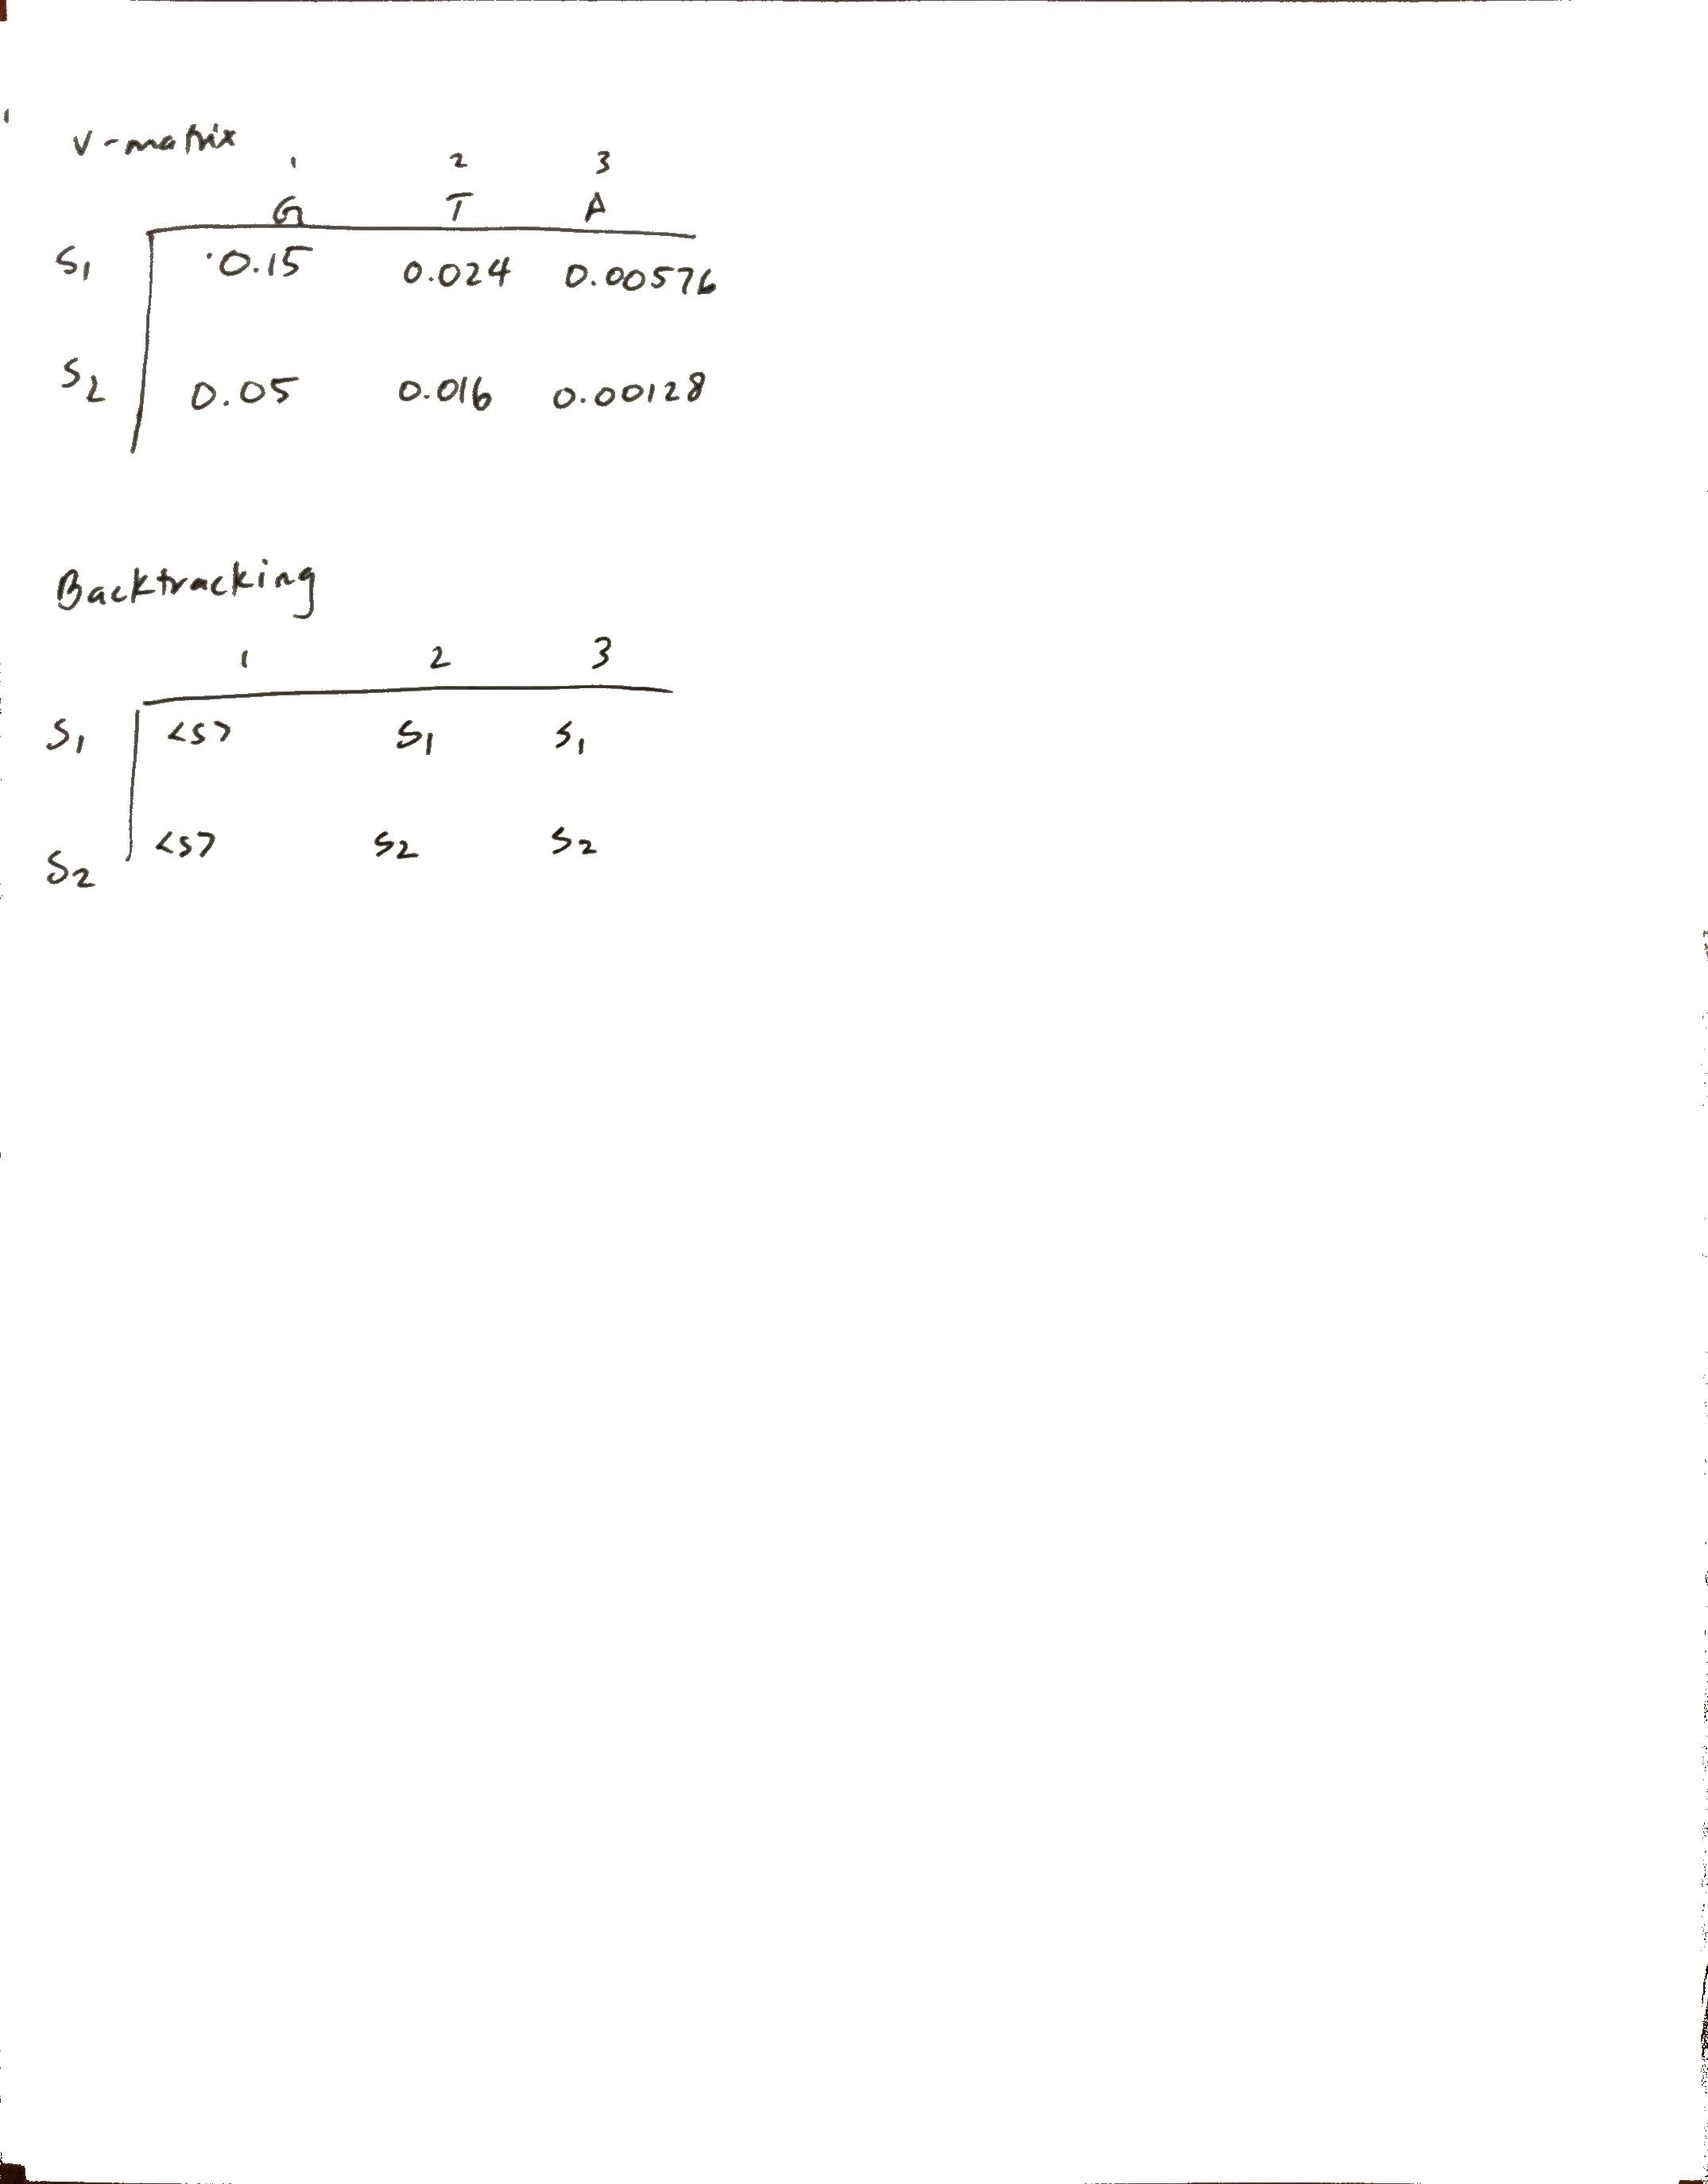 v-matrix
1 2 3
G T A
S1 0.15 0.024 0.00576
S2 0.05 0.016 0.00128
Backtracking
1 2 3
S1 <s> S1 S1
S2 <s> S2 S2